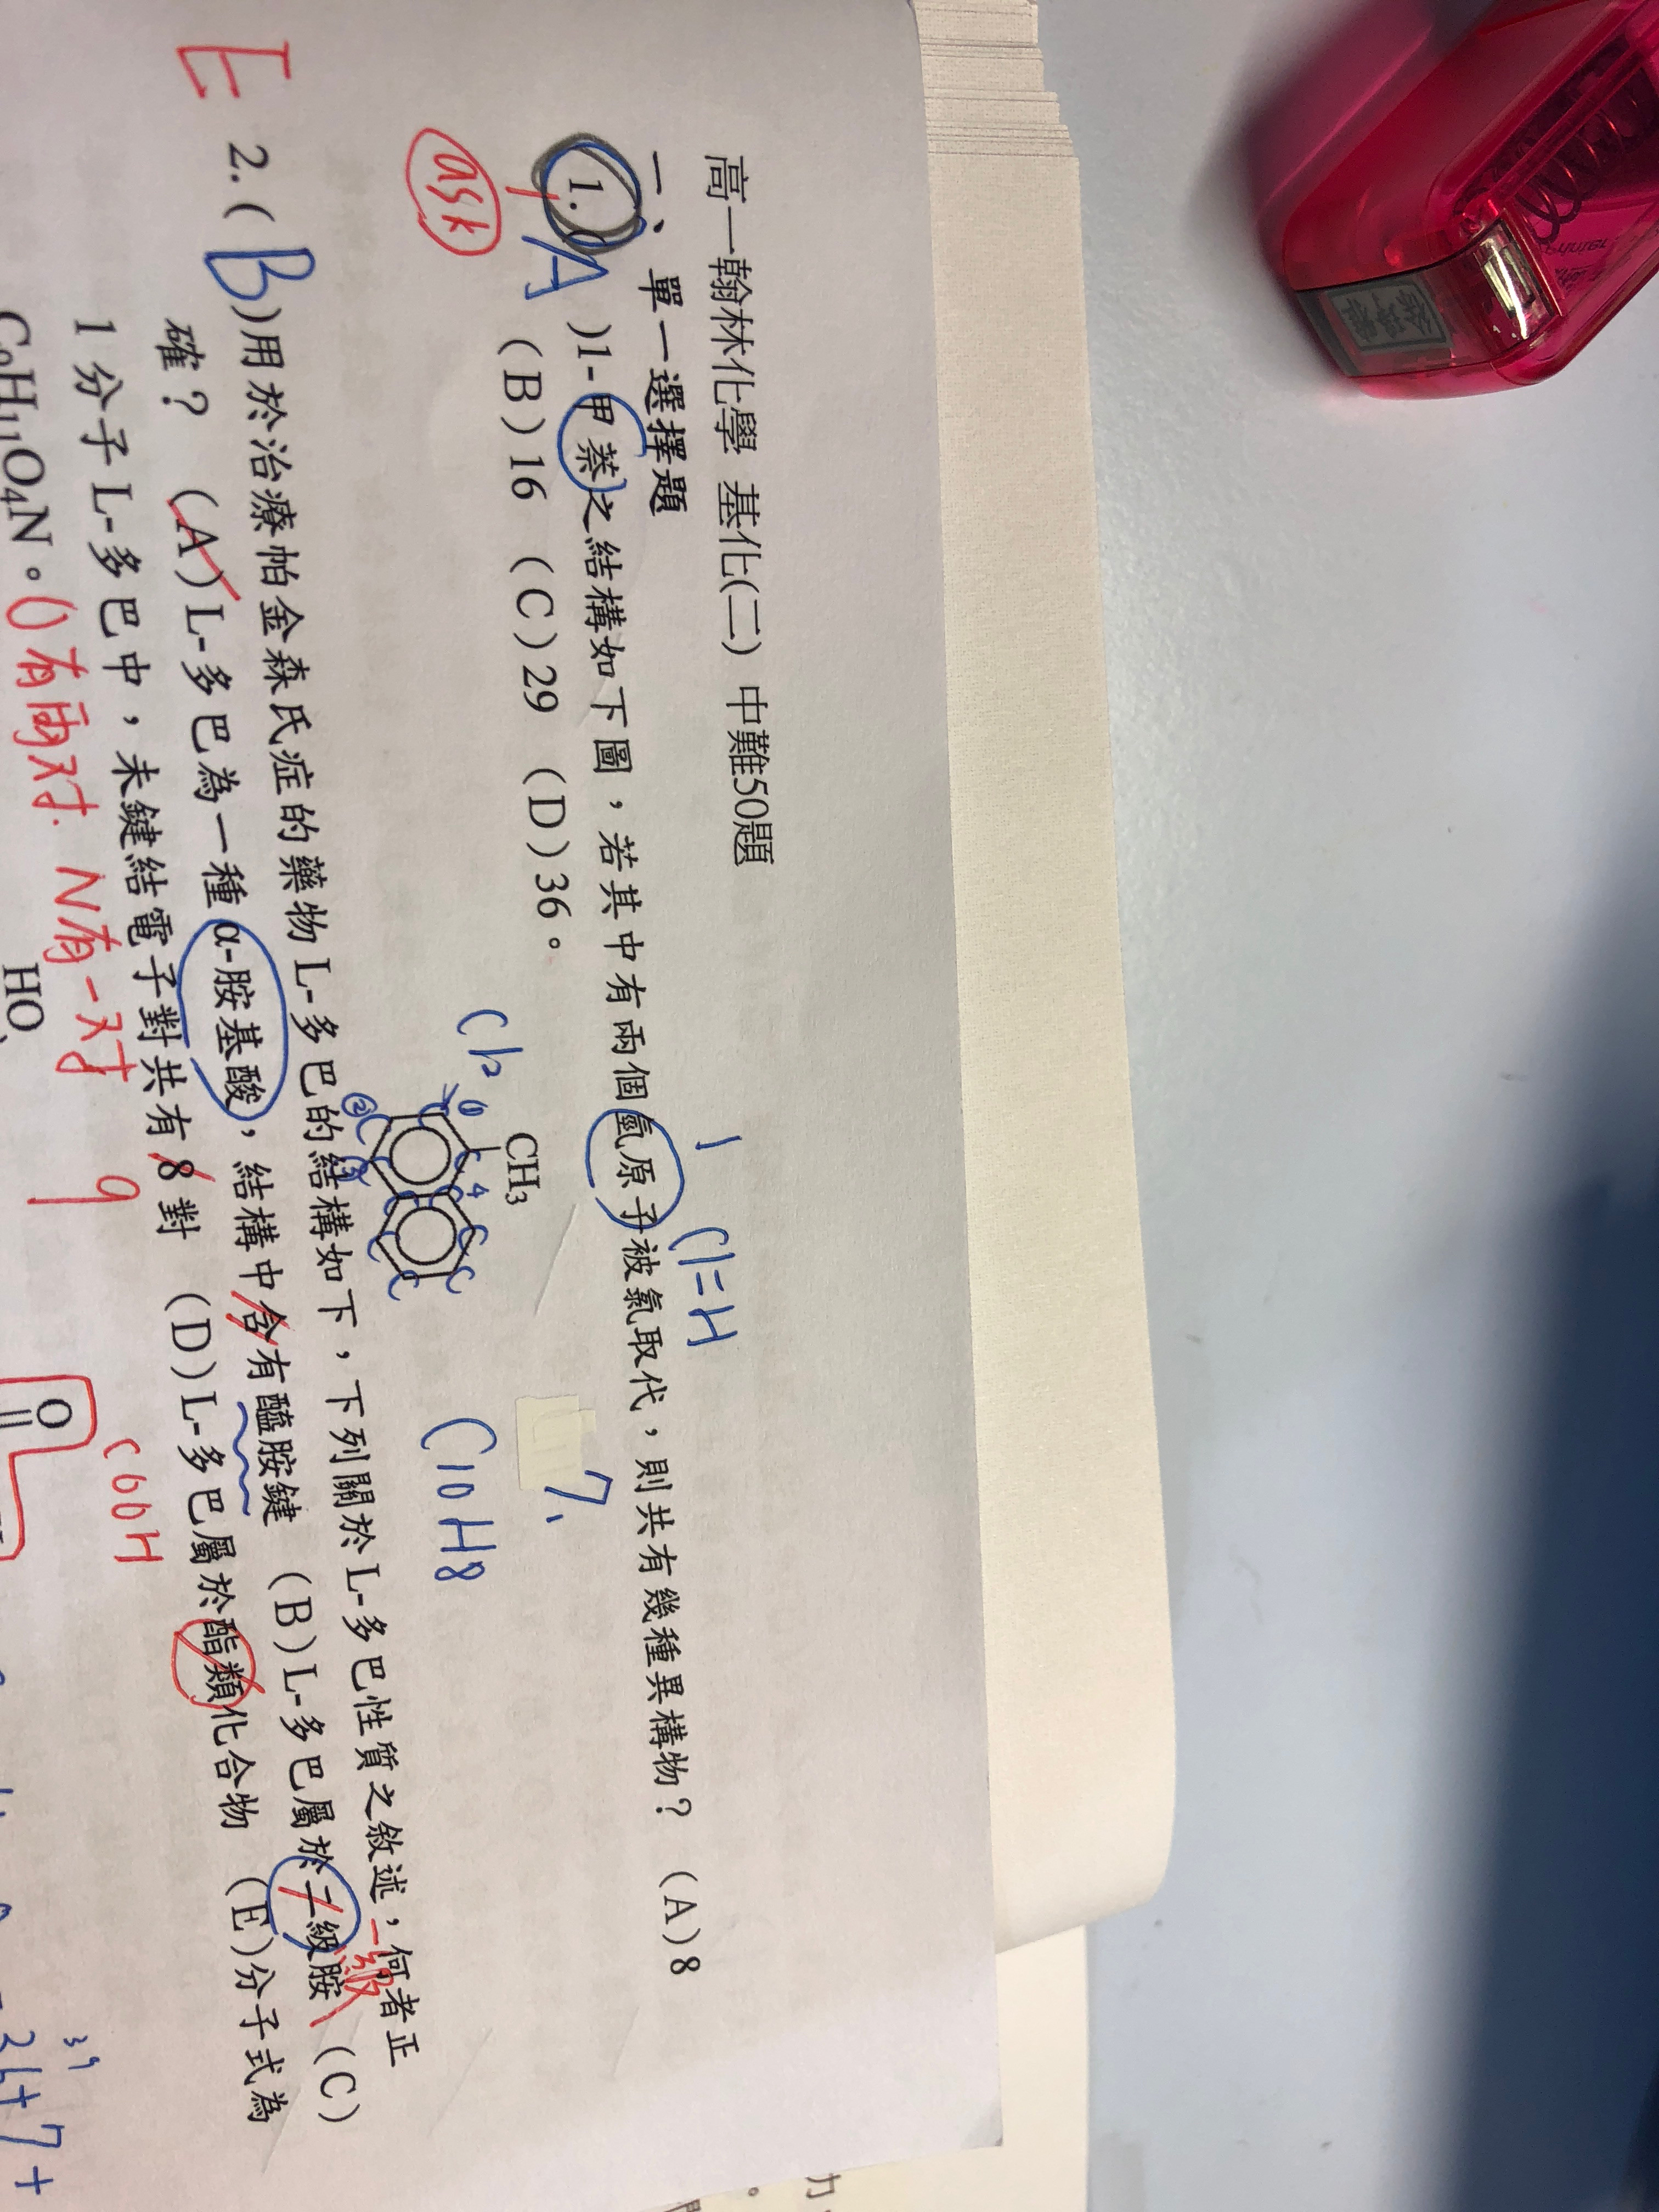 高一翰林化學 基化(二) 中難50題
一、單一選擇題
1.( A )1-甲萘之結構如下圖，若其中有兩個氫原子被氯取代，則共有幾種異構物？ (A)8
(B)16 (C)29 (D)36。
ask
1
Cl=H
7.
CH₃
Cl₂
C10H8
E
2.( B )用於治療帕金森氏症的藥物L-多巴的結構如下，下列關於L-多巴性質之敘述，何者正
一級
確？ (A)L-多巴為一種α-胺基酸，結構中含有醯胺鍵 (B)L-多巴屬於二級胺 (C)
1分子L-多巴中，未鍵結電子對共有8對 (D)L-多巴屬於酯類化合物 (E)分子式為
C₉H₁₁O₄N。
O有兩对. N有一对
9
COOH
HO
O
39